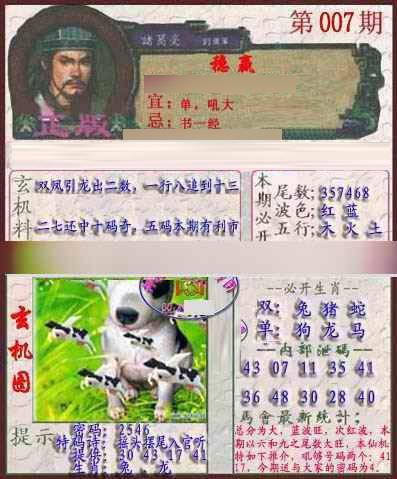 第007期
諸葛亮 劉伯軍
稳赢
宜：单，吼大
忌：书一经
正版
玄机料
双凤引龙出二数，一行八追到十三
二七还中十码奇，五码本期有利市
本期必开
尾数:357468
波色:红 蓝
五行:木 火 土
玄机图
--必开生肖--
双: 兔 猪 蛇
单: 狗 龙 马
--内部泄码--
43 07 11 35 41
36 48 30 28 40
馬會最新统计:
总分为大，蓝波旺，次红波，本
期以六和九之尾数大旺，本仙机
特如下推介，吼够号码两个: 41
17，今期送与大家的密码为4.
提示
密码: 2546
特码诗: 摇头摆尾入官听
提供: 30 43 17 41
生肖: 兔，龙